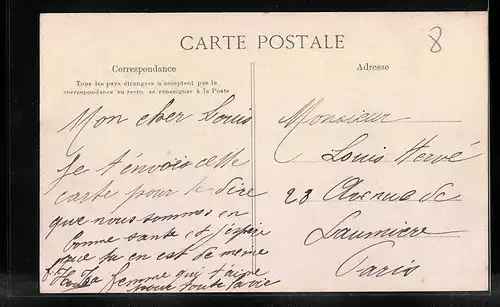 8
CARTE POSTALE
Correspondance
Adresse
Tous les pays étrangers n'acceptent pas la
correspondance au recto, se renseigner à la Poste
Mon cher Louis
Je t'envois cette
carte pour te dire
que nous sommes en
bonne sante et j'espère
que tu en est de meme
femme qui t'aime
pour toute la vie
Monsieur
Louis Hervé
28 Avenue de
Laumiere
Paris